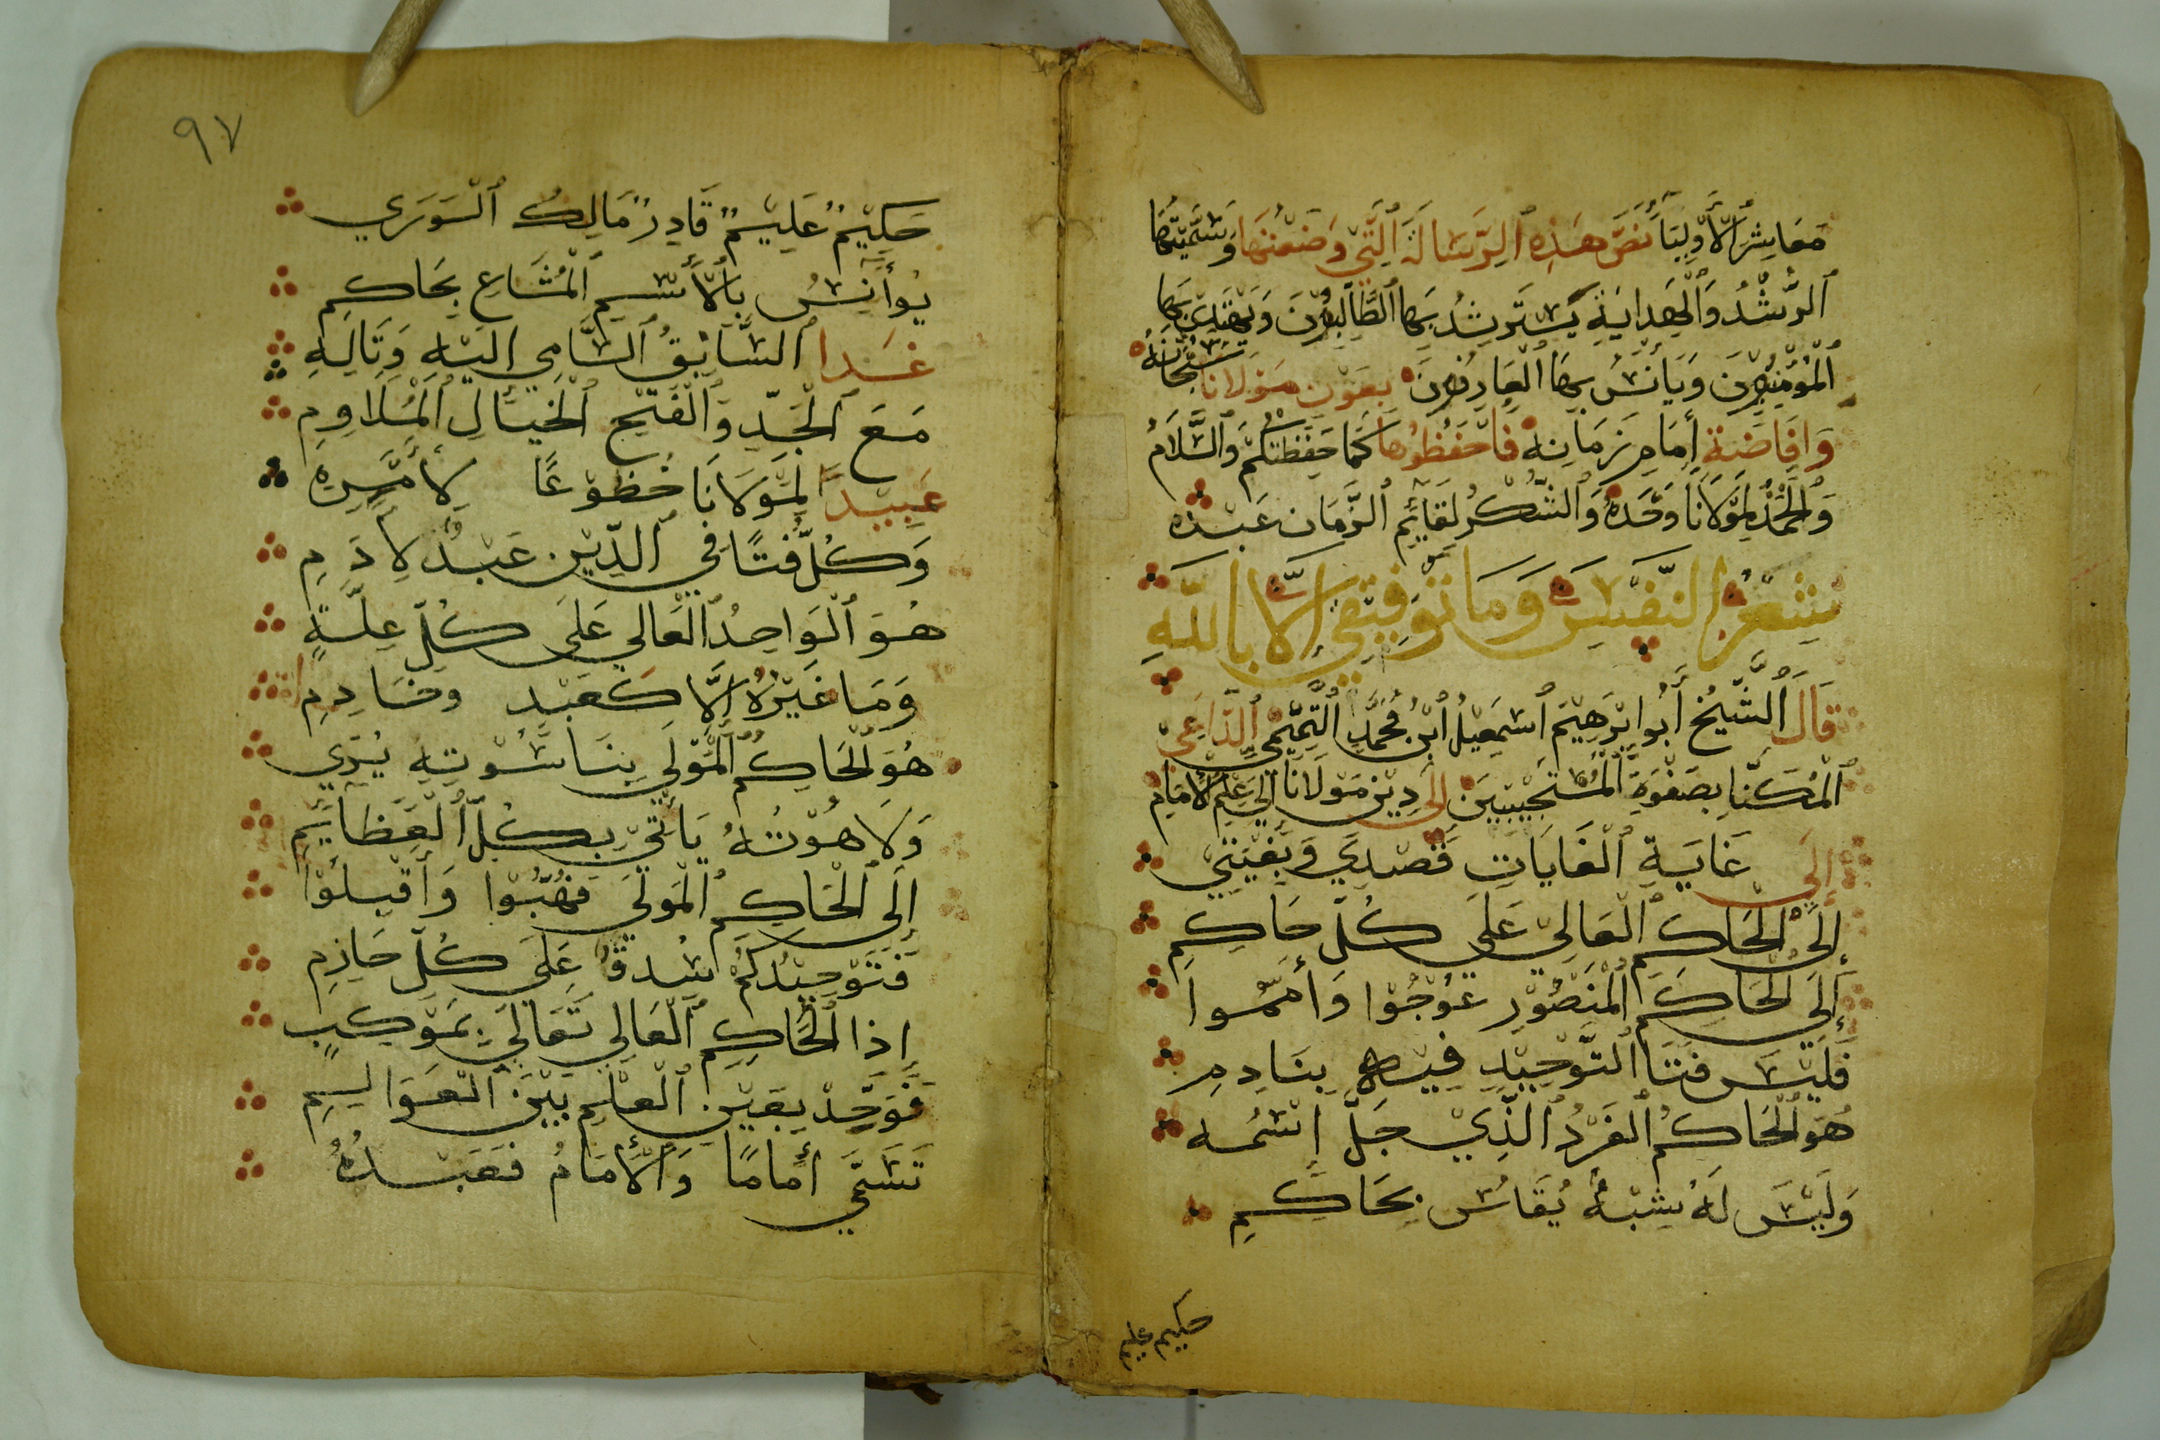 مَعَاشِرَ ٱلْأَوْلِيَآ نَصَّ هَذِهِ ٱلرِّسَالَةَ ٱلَّتِيْ وَضَعْتُهَا وَسَمَّيْتُهَا
ٱلرُّشْدُ وَٱلْهِدَايَةِ يَسْتَرْشِدُ بِهَا ٱلطَّالِبُوْنَ وَيَهْتَدِيْ بِهَا
ٱلْمُؤْمِنُوْنَ وَيَأْنَسُ بِهَا ٱلْعَارِفُوْنَ بِعَوْنِ مَوْلَانَا سُبْحَانَهُ
وَإِفَاضَةِ إِمَامِ زَمَانِهِ فَٱحْفَظُوْهَا كَمَا حَفِظْتُكُمْ وَٱلسَّلَامُ
وَٱلْحَمْدُ لِمَوْلَانَا وَحْدَهُ وَٱلشُّكْرُ لِقَآئِمِ ٱلزَّمَانِ عَبْدُهُ
شِعْرُ ٱلنَّفْسِ وَمَا تَوْفِيْقِيْ إِلَّا بِٱللَّهِ
قَالَ ٱلشَّيْخُ أَبُو إِبْرَهِيْمَ ٱسْمَعِيْلُ ٱبْنُ مُحَمَّدِ ٱلتَّمِيْمِيْ ٱلدَّاعِيْ
ٱلْمُكَنَّا بِصَفْوَةِ ٱلْمُسْتَجِيْبِيْنَ إِلَى دِيْنِ مَوْلَانَا إِلَى عِلْمِ ٱلْإِمَامِ
إِلَى غَايَةِ ٱلْغَايَاتِ قَصْدِيْ وَبِغْيَتِيْ
إِلَى ٱلْحَاكِمِ ٱلْعَالِيْ عَلَى كُلِّ حَاكِمِ
إِلَى ٱلْحَاكِمِ ٱلْمَنْصُوْرِ عُوْجُوْا وَأُمُّوا
فَلَيْسَ فَتَا ٱلتَّوْحِيْدِ فِيْهِ بِنَادِمِ
هُوَ ٱلْحَاكِمُ ٱلْفَرْدُ ٱلَّذِيْ جَلَّ إِسْمُهُ
وَلَيْسَ لَهُ شِبْهٌ يُقَاسُ بِحَاكِمِ
حكيم عليم
٩٧
حَكِيْمٌ عَلِيْمٌ قَادِرٌ مَالِكُ ٱلْوَرَي
يُؤَآنِسُ بِٱلْأَسْمِ ٱلْمُشَاعِ بِحَاكِمِ
غَدَا ٱلسَّابِقُ ٱلسَّامِي إِلَيْهِ وَتَالِيَهِ
مَعَ ٱلْجَدِّ وَٱلْفَتْحِ ٱلْخَيَالِ ٱلْمُلَاوِمِ
عَبِيْدًا لِمَوْلَانَا خُضُوْعًا لِأَمْرِهِ
وَكُلُّ فَتًا فِي ٱلدِّيْنِ عَبْدٌ لِأَدَمِ
هُوَ ٱلْوَاحِدُ ٱلْعَالِي عَلَى كُلِّ عِلَّةٍ
وَمَا غَيْرُهُ إِلَّا كَعَبْدٍ وَخَادِمِ
هُوَ ٱلْحَاكِمُ ٱلْمَوْلَى بِنَاسُوْتِهِ يُرَي
وَلَاهُوْتُهُ يَأْتِيْ بِكُلِّ ٱلْعَظَآئِمِ
إِلَى ٱلْحَاكِمِ ٱلْمَوْلَى فَهُبُّوْا وَأَقْبِلُوْا
فَتَوْحِيْدُكُمْ سُدَّ عَلَى كُلِّ حَازِمِ
إِذَا ٱلْحَاكِمُ ٱلْعَالِي تَعَالَى بِمَوْكِبٍ
فَوَحِّدْ بِعَيْنِ ٱلْعِلْمِ بَيْنَ ٱلْعَوَالِمِ
تَسَمَّى إِمَامًا وَٱلْإِمَامُ فَعَبْدُهُ